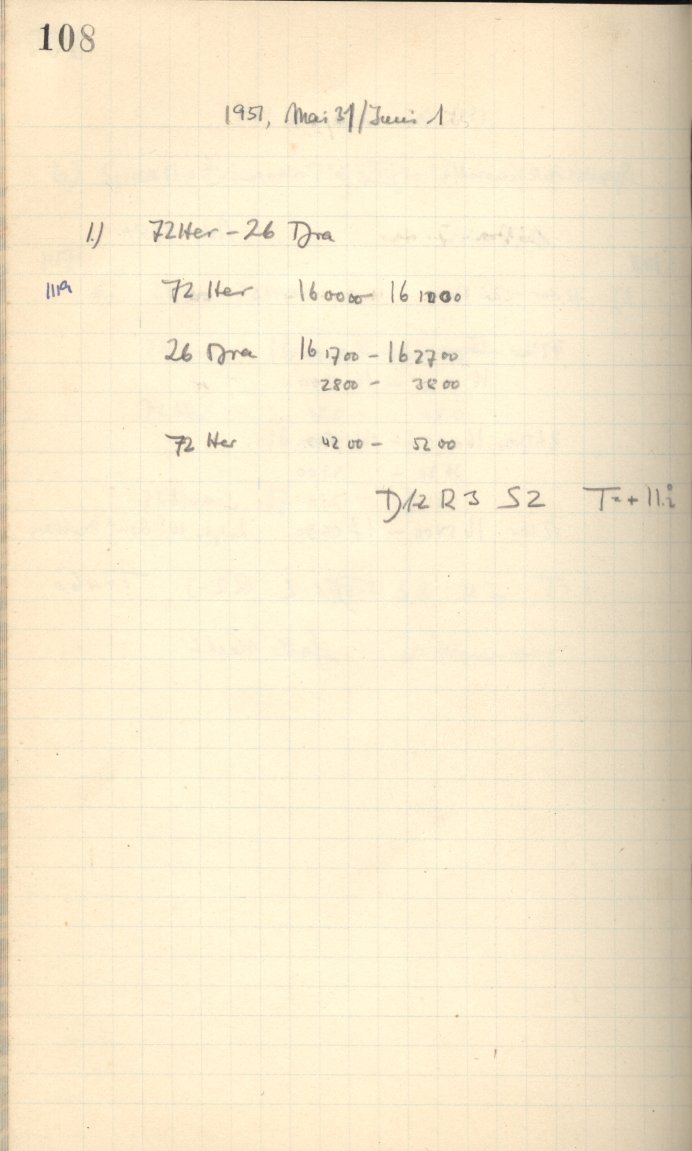 108
1951, Mai 31/Juni 1
1.) 72 Her - 26 Dra
1119 72 Her 16 00 00 - 16 10 00
26 Dra 16 17 00 - 16 27 00
28 00 - 38 00
72 Her 42 00 - 52 00
D 1-2 R 3 S 2 T = + 11.